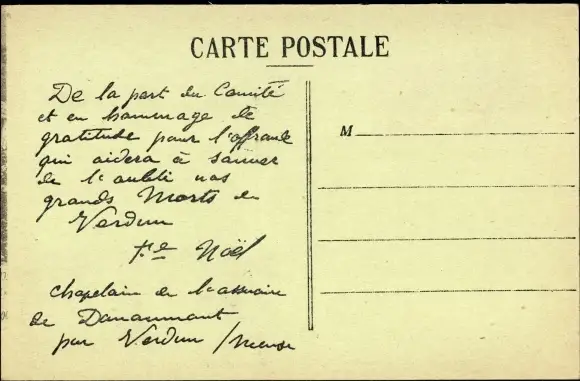 CARTE POSTALE
De la part du Comité
et en hommage de
gratitude pour l'offrande
qui aidera à sauver
de l'oubli nos
grands Morts de
Verdun
Noël
chapelain de l'ossuaire
de Douaumont
par Verdun / Meuse
M